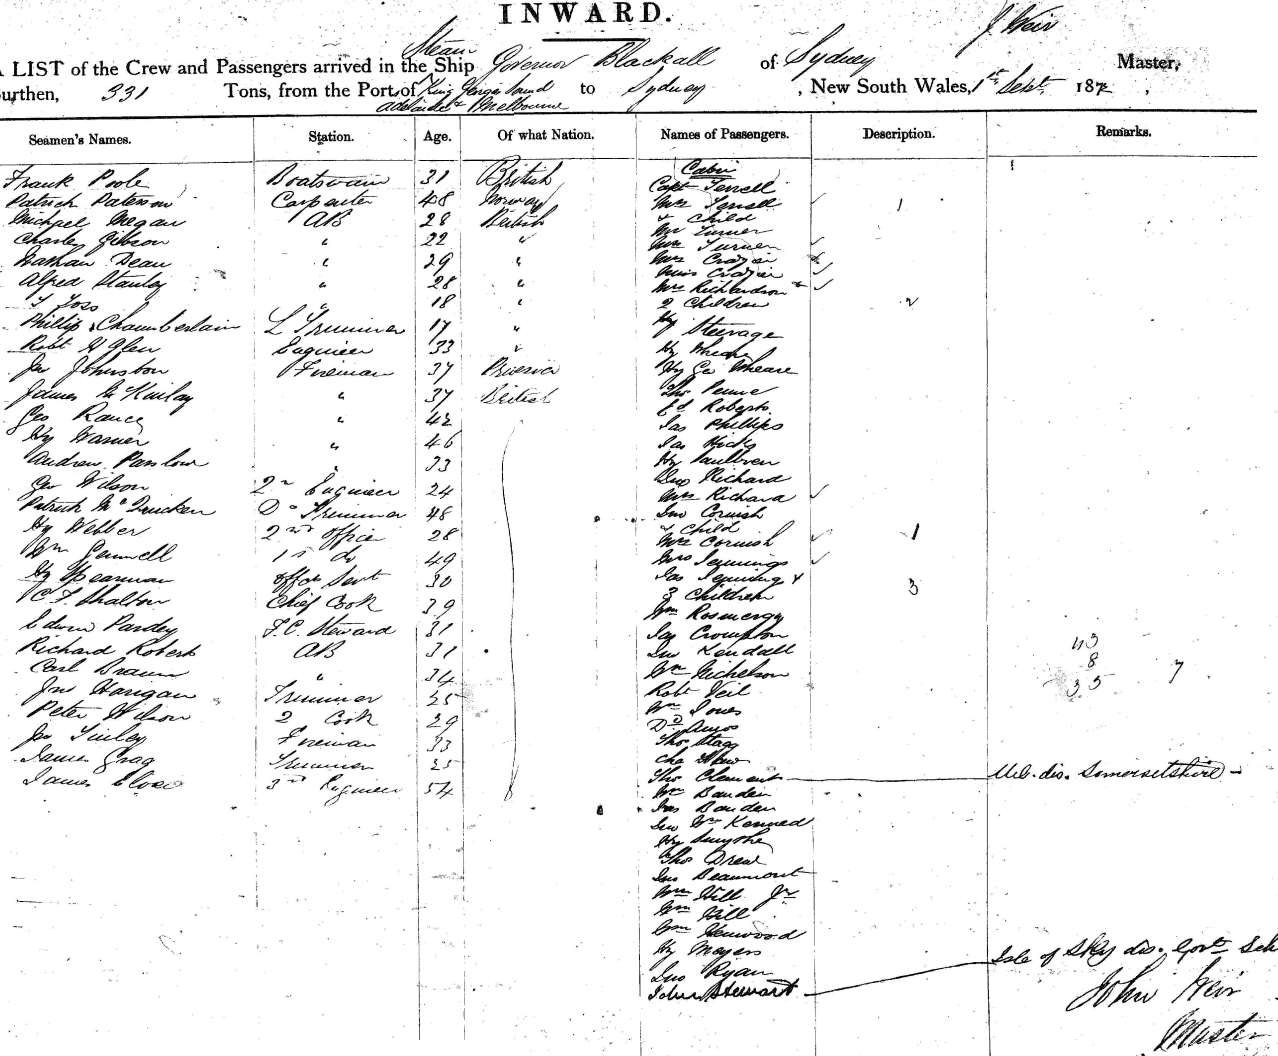 INWARD.
A LIST of the Crew and Passengers arrived in the Steam Ship Governor Blackall of Sydney J Weir Master,
Burthen, 331 Tons, from the Port of King Georges Sound Adelaide & Melbourne to Sydney, New South Wales, 1st Sept 187
Seamen's Names. Station. Age. Of what Nation. Names of Passengers. Description. Remarks.
Frank Poole Boatswain 31 British
Patrick Paterson Carpenter 48 Norway
Michael Megan AB 28 British
Charles Gibson " 22 "
Nathan Dean " 29 "
Alfred Stanley " 28 "
18 "
Phillip Chamberlain L Trimmer 17 "
Robt H Glen Engineer 33 "
Jno Johnston Fireman 37
James McKinlay " 37 British
Geo Rance " 42
Hy Warner " 46
Andrew Parslow " 33
Geo Wilson 2nd Engineer 24
Patrick Do Trimmer 48
Hy Webber 2nd Officer 28
Wm Gemmell 1st do 49
Hy Spearman Offrs Servt 30
C F Shalton Chief Cook 39
Edwin Pardey F.C. Steward 31
Richard Roberts AB 31
Carl Braun " 34
Jno Harigan Trimmer 25
Peter Wilson 2 Cook 29
Jno Finley Fireman 33
James Trimmer 25
James 3rd Engineer 54
Cabin
Capt Terrell
Mrs Terrell
& Child 1
Mr Turner
Mrs Turner
Mrs Crozier
Miss Crozier
Mrs Richardson +
2 Children 2
Steerage
Hy Wheare
Hy Geo Wheare
Thos Penne
Ed Roberts
Jas Phillips
Jas Hicks
Hy
Jno Richard
Mrs Richard
Jno Cornish
& Child 1
Mrs Cornish
Mrs Jennings
Jas Jennings +
3 Children 3
Wm Rosmergy
Jas Crompton
Jno Kendall
Wm Nicholson
Robt Veil
Wm Jones
Dd Amos
Thos Stagg
Cha
Thos Clement M.O. dis. Somersetshire
Wm Bawden
Jas Bawden
Jno Wm Kenned
Hy Smythe
Thos Drew
Jno Beaumont
Wm Hill Jr
Wm Hill
Wm Henwood
Hy Meyers
Jno Ryan
John Stewart Isle of Sky dis. Govt Sch
43
8
35 7
John Weir
Master